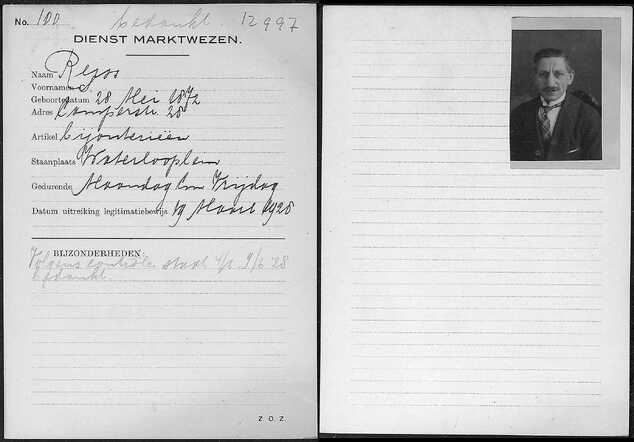 No. 100 bedankt 12997
DIENST MARKTWEZEN.
Naam
Voornamen S.
Geboortedatum 28 Mei 1872
Adres Camperstr 28
Artikel bijouterieën
Staanplaats Waterlooplein
Gedurende Maandag t/m Vrijdag
Datum uitreiking legitimatiebewijs 19 Maart 1928
BIJZONDERHEDEN:
Volgens controle staat 9/6 '28
bedankt
Z. O. Z.